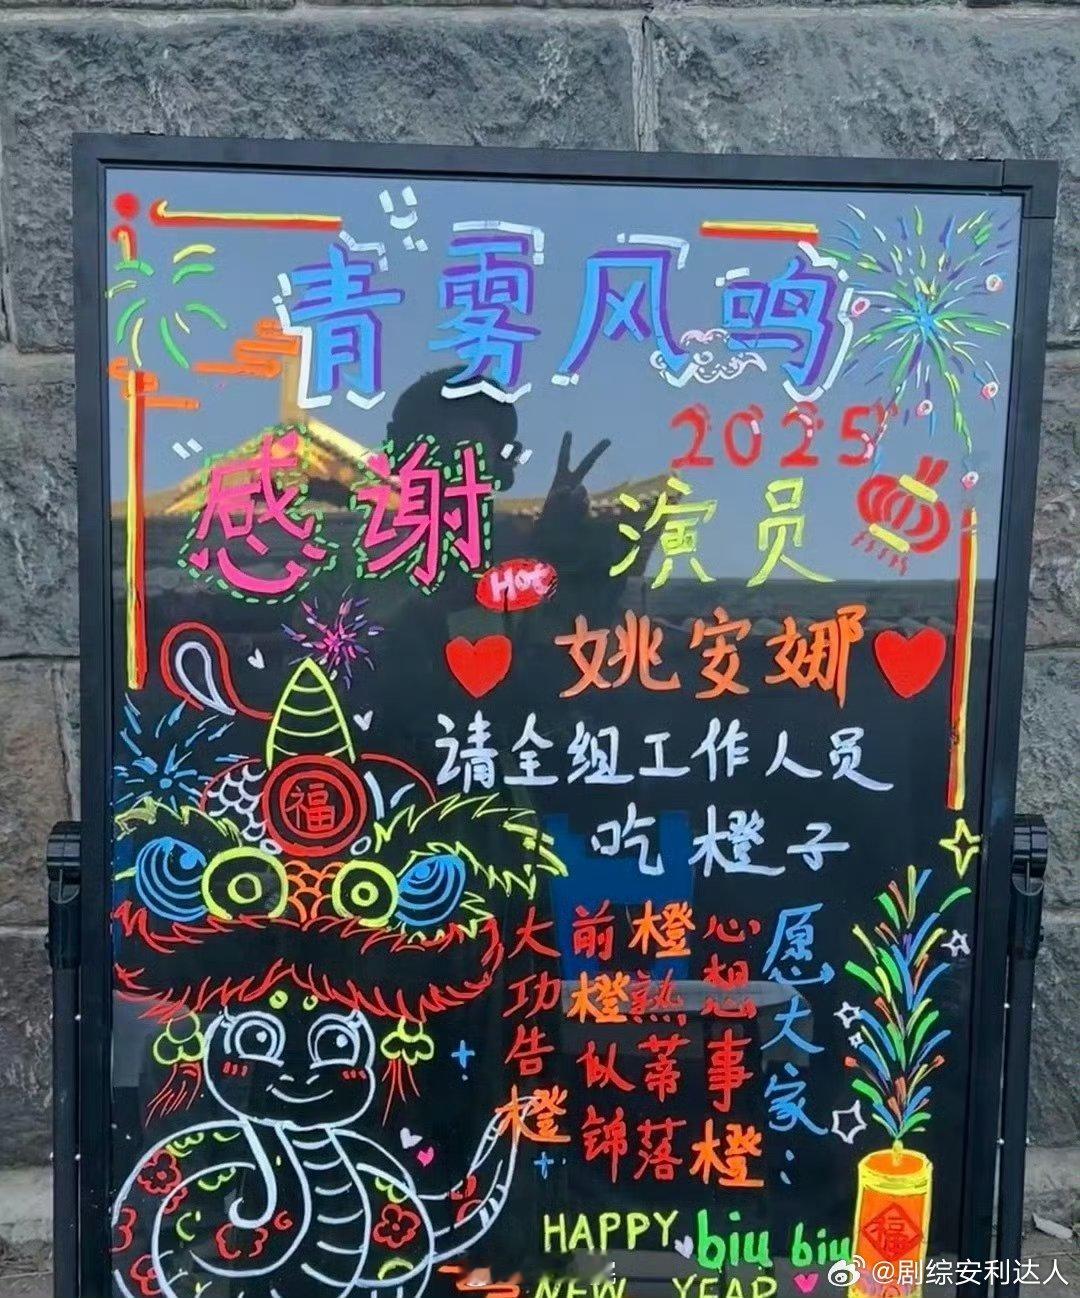 青雾风鸣
2025
感谢
演员
Hot
姚安娜
请全组工作人员
吃橙子
福
愿大家：
心想事橙
橙熟蒂落
前橙似锦
大功告橙
HAPPY biu biu
NEW YEAR
福
@剧综安利达人